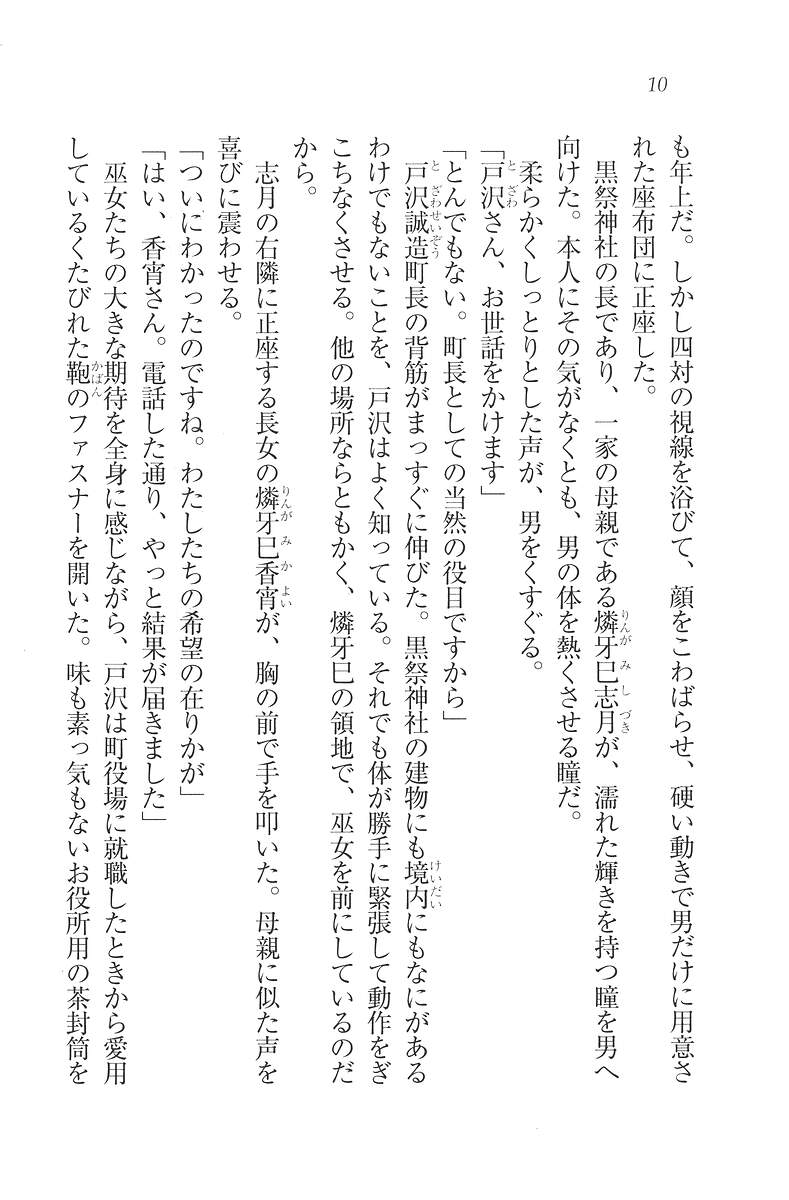 10
も年上だ。しかし四対の視線を浴びて、顔をこわばらせ、硬い動きで男だけに用意さ
れた座布団に正座した。
黒祭神社の長であり、一家の母親である燐牙巳志月が、濡れた輝きを持つ瞳を男へ
りんがみしづき
向けた。本人にその気がなくとも、男の体を熱くさせる瞳だ。
柔らかくしっとりとした声が、男をくすぐる。
「戸沢さん、お世話をかけます」
とざわ
「とんでもない。町長としての当然の役目ですから」
戸沢誠造町長の背筋がまっすぐに伸びた。黒祭神社の建物にも境内にもなにがある
とざわせいぞう
けいだい
わけでもないことを、戸沢はよく知っている。それでも体が勝手に緊張して動作をぎ
こちなくさせる。他の場所ならともかく、燐牙巳の領地で、巫女を前にしているのだ
から。
志月の右隣に正座する長女の燐牙巳香宵が、胸の前で手を叩いた。母親に似た声を
りんがみかよい
喜びに震わせる。
「ついにわかったのですね。わたしたちの希望の在りかが」
「はい、香宵さん。電話した通り、やっと結果が届きました」
巫女たちの大きな期待を全身に感じながら、戸沢は町役場に就職したときから愛用
しているくたびれた鞄のファスナーを開いた。味も素っ気もないお役所用の茶封筒を
かばん